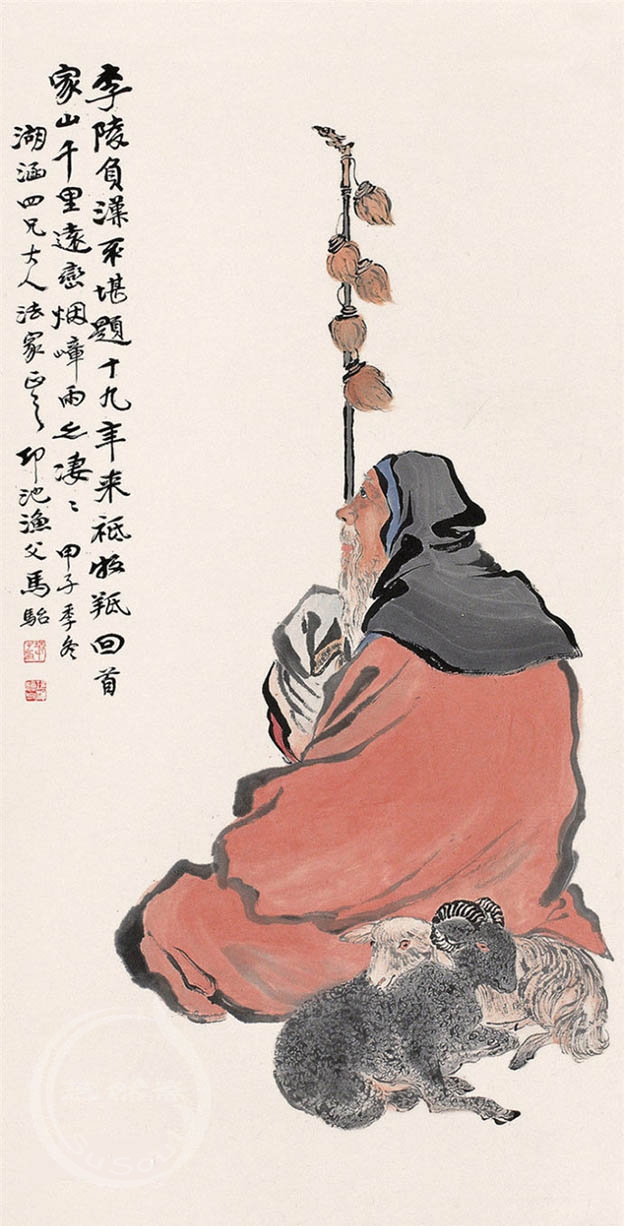 李陵負漢不堪題十九年来祗牧羝回首
家山千里遠巒烟嶂雨淒〻甲子季冬
湖涵四兄大人法家正之邛池漁父馬駘